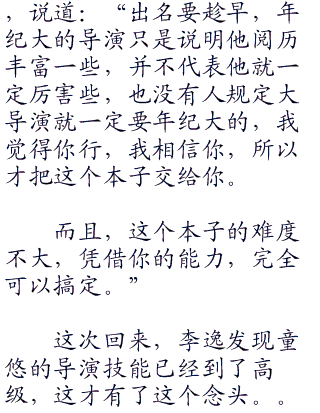 ，说道：“出名要趁早，年
纪大的导演只是说明他阅历
丰富一些，并不代表他就一
定厉害些，也没有人规定大
导演就一定要年纪大的，我
觉得你行，我相信你，所以
才把这个本子交给你。
而且，这个本子的难度
不大，凭借你的能力，完全
可以搞定。”
这次回来，李逸发现童
悠的导演技能已经到了高
级，这才有了这个念头。。